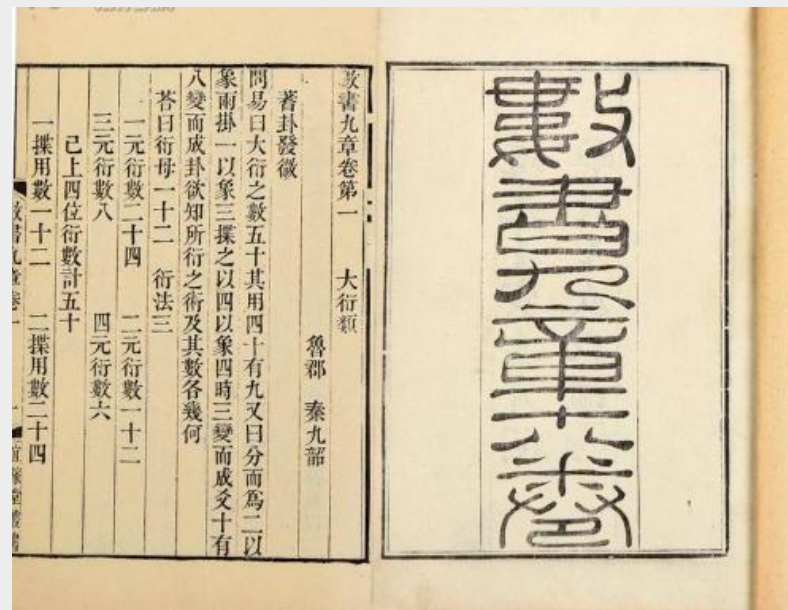 數書九章十八卷
數書九章卷第一 大衍類
魯郡 秦九韶
蓍卦發微
問易曰大衍之數五十其用四十有九又曰分而爲二以
象兩掛一以象三揲之以四以象四時三變而成爻十有
八變而成卦欲知所衍之術及其數各幾何
答曰衍母一十二 衍法三
一元衍數二十四 二元衍數一十二
三元衍數八 四元衍數六
已上四位衍數計五十
一揲用數一十二 二揲用數二十四
數書九章卷一
一
宜稼堂叢書